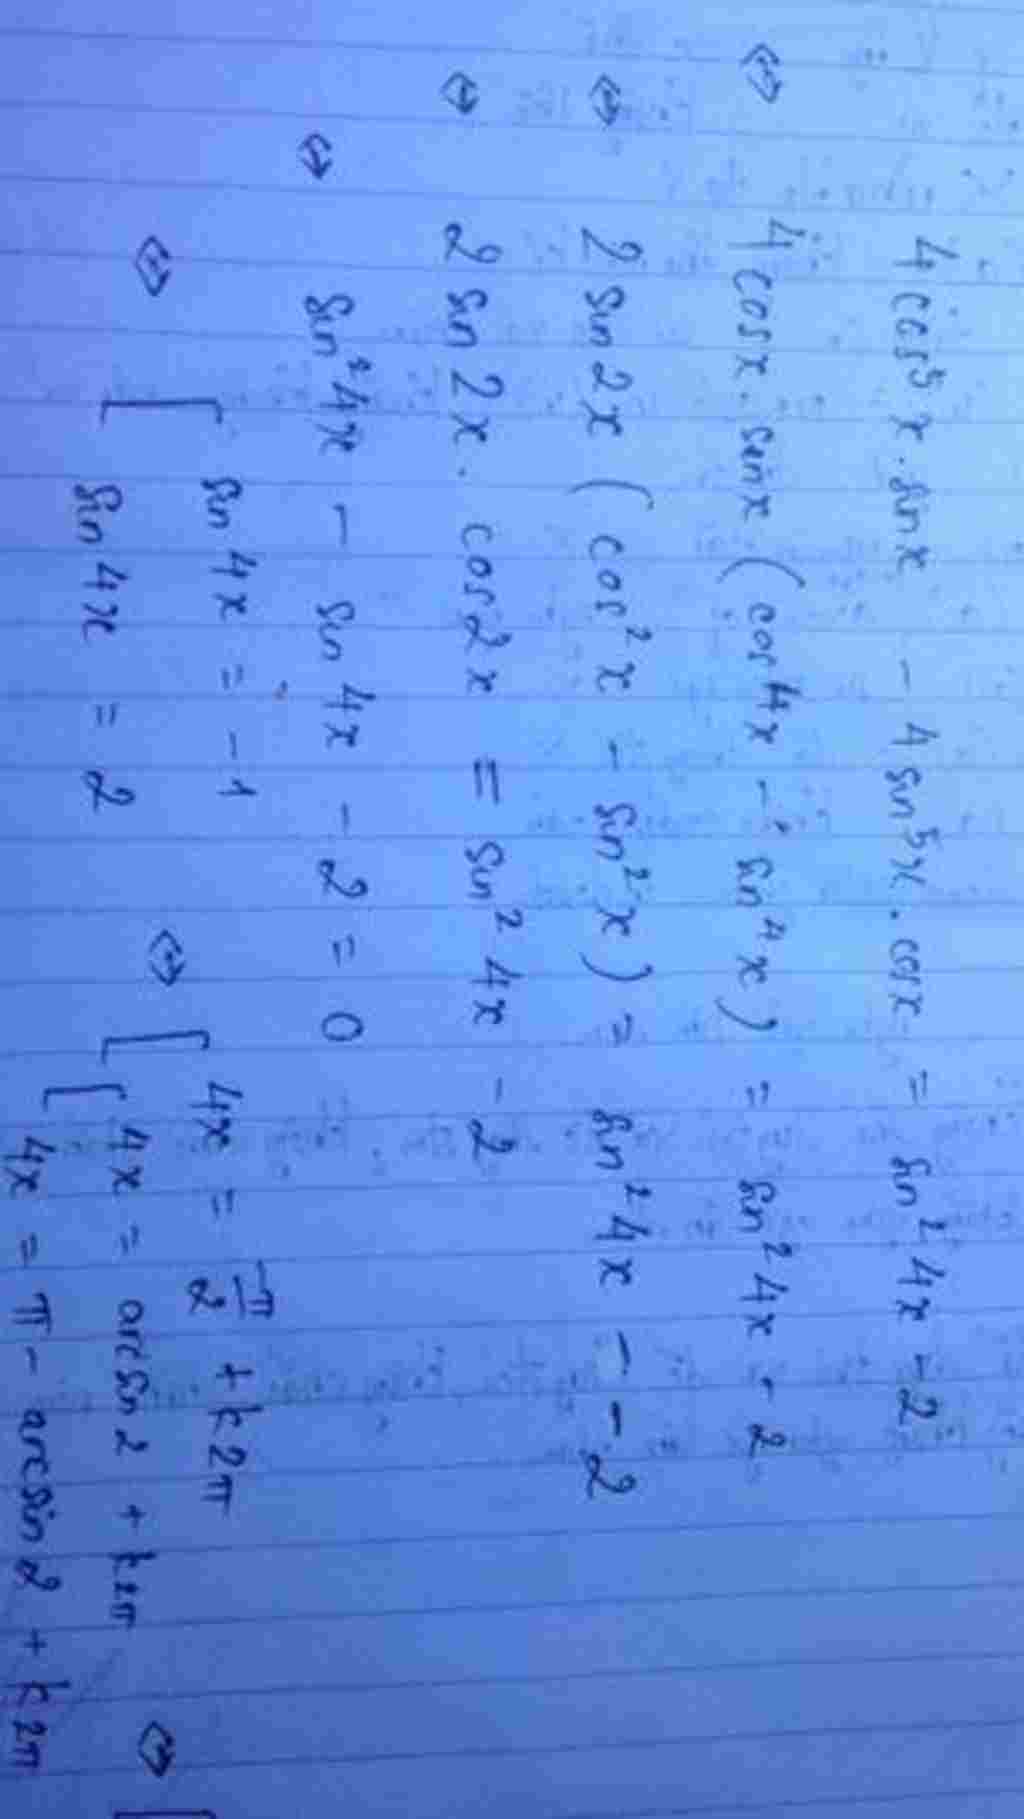 4cos⁵x.sinx - 4sin⁵x.cosx = sin²4x - 2
⇔ 4cosx.sinx (cos⁴x - sin⁴x) = sin²4x - 2
⇔ 2sin2x (cos²x - sin²x) = sin²4x - - 2
⇔ 2sin2x. cos2x = sin²4x - 2
⇔ sin²4x - sin4x - 2 = 0
⇔ [ sin4x = -1
sin4x = 2
⇔ [ 4x = -π/2 + k2π
[ 4x = arcsin2 + k2π
4x = π - arcsin2 + k2π
⇔ [